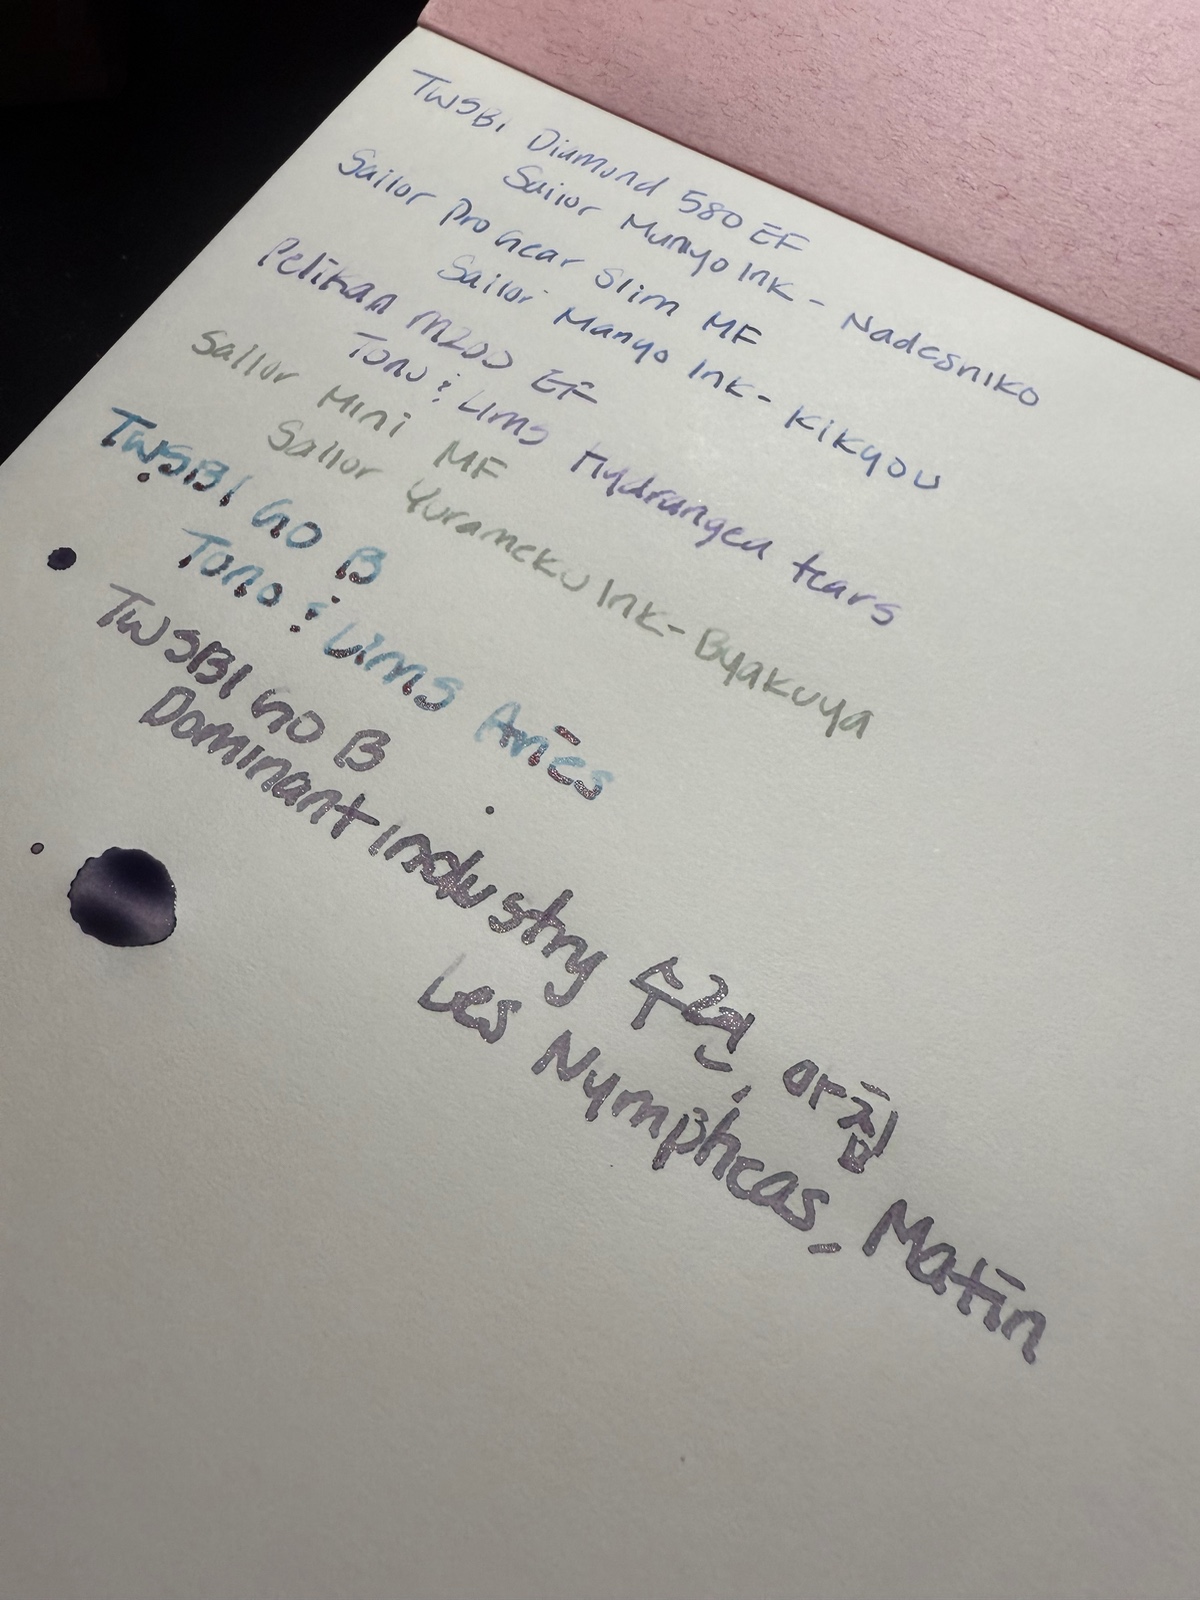 TWSBI Diamond 580 EF
Sailor Manyo Ink - Nadesniko
Sailor Pro Gear Slim MF
Sailor Manyo Ink - Kikyou
Pelikan M200 EF
Tono & Lims Hydrangea tears
Sailor Mini MF
Sailor Yurameku Ink - Byakuya
TWSBI GO B
Tono & Lims Aries
TWSBI GO B
Dominant industry 수련, 아침
Les Nympheas, Matin